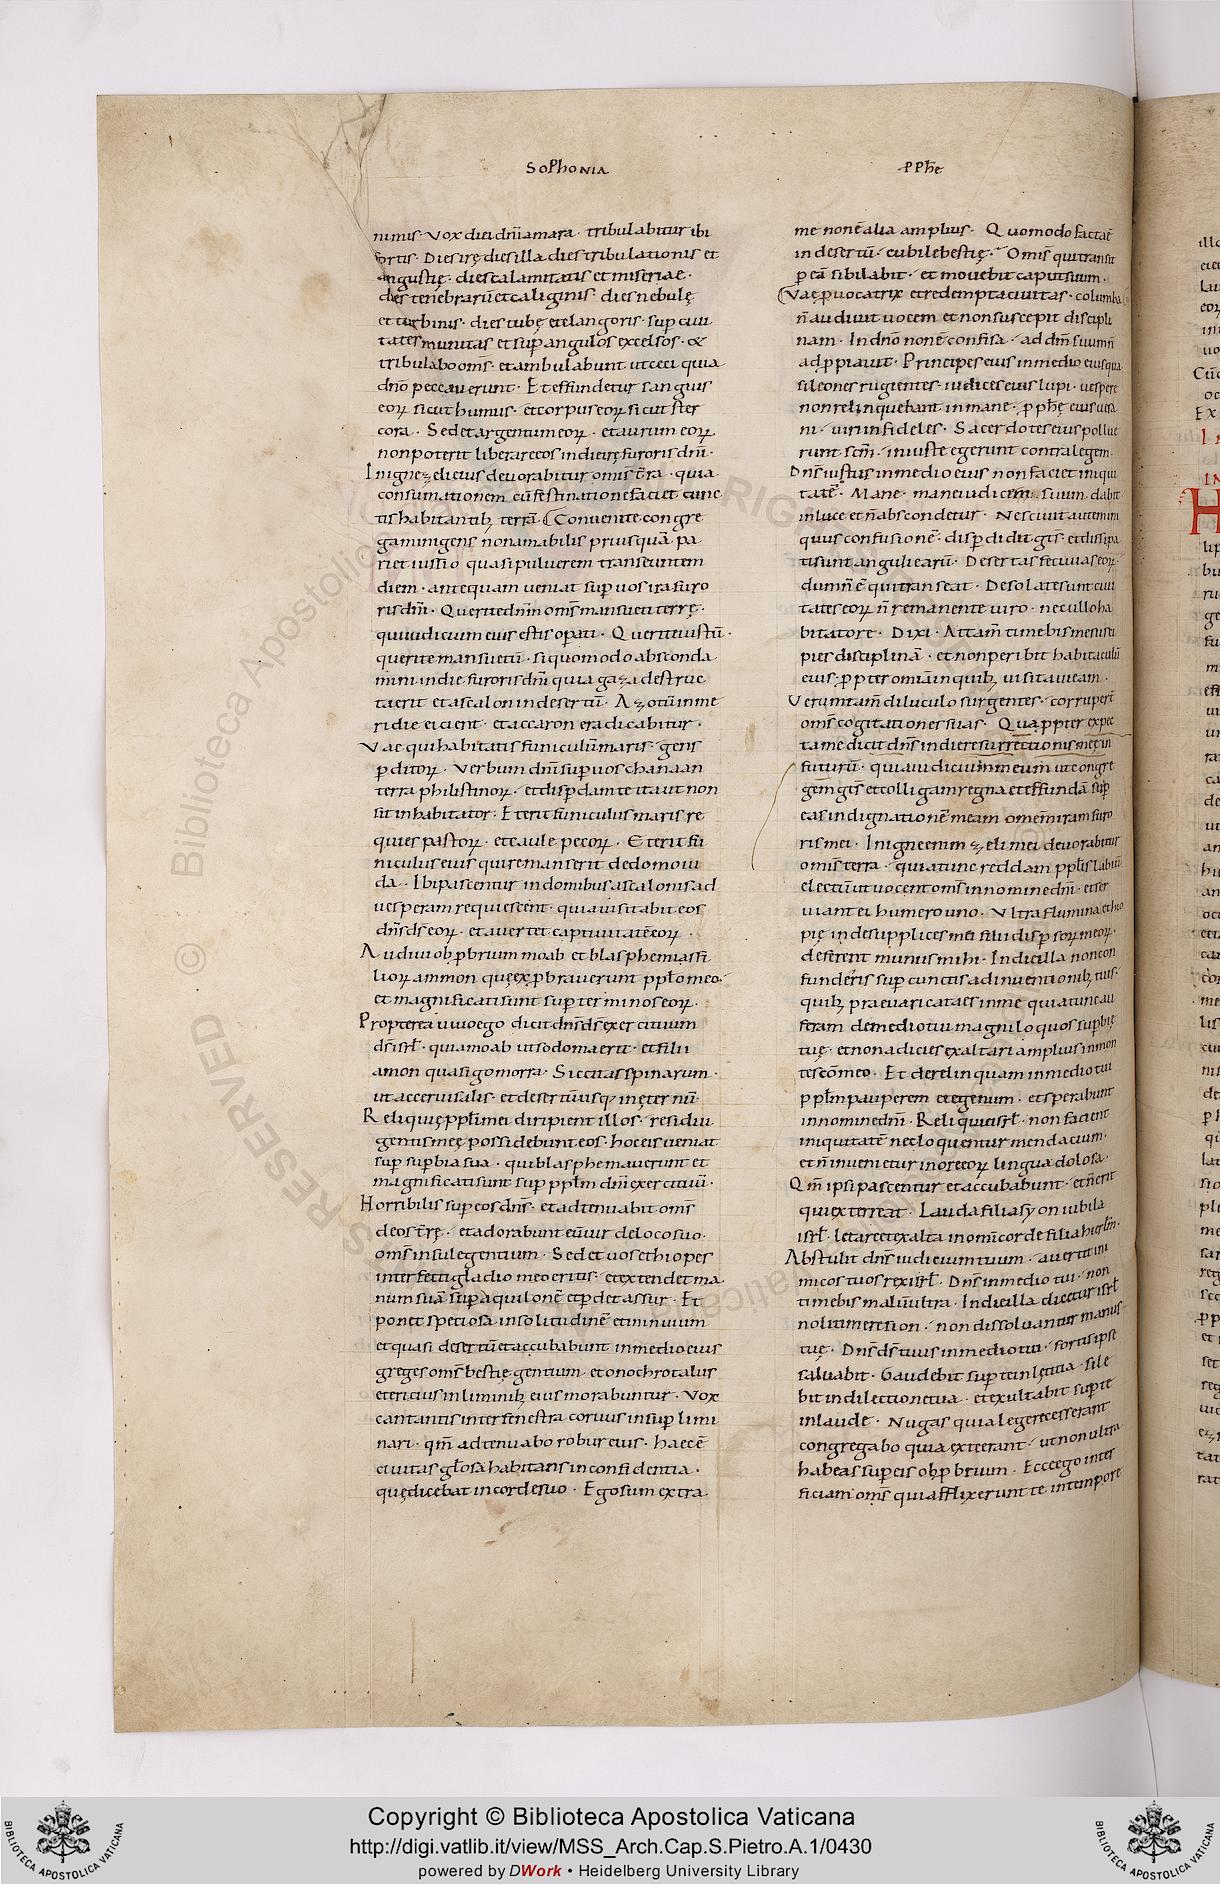 SOPhONIA
PPhE
nimis · vox diei dñi amara · tribulabitur ibi
fortis · Dies irę dies illa dies tribulationis et
angustię · dies calamitatis et miseriae ·
dies tenebrarū et caliginis · dies nebulę
et turbinis · dies tubę et clangoris · sup ciui
tates munitas et sup angulos excelsos · &
tribulabo oms̄ · et ambulabunt ut ceci quia
dn̄o peccauerunt · Et effundetur sanguis
eorꝝ sicut humus · et corpus eorꝝ sicut ster
cora · Sed et argentum eorꝝ · et aurum eorꝝ ·
non poterit liberare eos in die irę furoris dn̄i ·
In igne zeli eius deuorabitur omis̄ t̄ra · quia
consumationem cū festinatione faciet cunc
tis habitantibꝫ terrā · Conuenite congre
gamini gens non amabilis priusquā pa
riet iussio quasi puluerem transeuntem
diem · antequam ueniat sup uos ira furo
ris dn̄i · Querite dn̄m oms̄ mansueti terrę ·
qui iudicium eius estis opati · Querite iustū ·
querite mansuetū · si quomodo absconda
mini in die furoris dn̄i quia gaza destruc
ta erit et ascalon in desertū · Azotū in me
ridie eicient · et accaron eradicabitur ·
Vae qui habitatis funiculū maris · gens
pditorꝝ · Verbum dn̄i sup uos chanaan
terra philistinorꝝ · et dispdam te ita ut non
sit inhabitator · Et erit funiculus maris re
quies pastorꝝ · et caule pecorꝝ · Et erit fu
niculus eius qui remanserit de domo iu
da · Ibi pascentur in domibus ascalonis ad
uesperam requiescent · quia uisitabit eos
dn̄s ds̄ eorꝝ · et auertet captiuitatē eorꝝ ·
Audiui obpbrium moab et blasphemias fi
liorꝝ ammon quę expbrauerunt pplo meo ·
et magnificati sunt sup terminos eorꝝ ·
Propterea uiuo ego dicit dn̄s ds̄ exercituum
ds̄ isrł · quia moab ut sodoma erit · et filii
amon quasi gomorra · Siccitas spinarum ·
ut acerui salis · et desertū usqꝫ in ęternū ·
Reliquię ppli mei diripient illos · residui
gentis meę possidebunt eos · hoc eis ueniat
sup supbia sua · qui blasphemauerunt et
magnificati sunt sup pplm dn̄i exercituū ·
Horribilis sup eos dn̄s · et adtenuabit oms̄
deos t̄rę · et adorabunt eū uir de loco suo ·
oms̄ insulę gentium · Sed et uos ethiopes
interfecti gladio meo eritis · et extendet ma
num suā sup aquilonē et pdet assur · Et
ponet speciosā in solitudinē et in inuium
et quasi desertū et accubabunt in medio eius
greges oms̄ bestię gentium · et onochrotalus
et ericius in liminibꝫ eius morabuntur · Vox
cantantis in fenestra coruus in sup limi
nari · qm̄ adtenuabo robur eius · haec ē
ciuitas głosa habitans in confidentia ·
quę dicebat in corde suo · Ego sum extra
me non ē alia amplius · Quomodo facta ē
in desertū · cubile bestię · Omis̄ qui transit
p eā sibilabit · et mouebit caput suum ·
Vae puocatrix et redempta ciuitas · columba
n̄ audiuit uocem et non suscepit discipli
nam · In dn̄o non ē confisa · ad dm̄ suum n̄
adppiauit · Principes eius in medio eius qua
si leones rugientes · iudices eius lupi · uespere
non relinquebant in mane · pphę eius uesa
ni · uiri infideles · Sacerdotes eius pollue
runt scm̄ · iniuste egerunt contra legem
Dn̄s iustus in medio eius non faciet iniqui
tatē · Mane · mane iudicium suum dabit
in luce et n̄ abscondetur · Nesciuit autem ini
quus confusionē · dispdidit gts̄ · et dissipa
ti sunt anguli earū · Desertas feci uias eorꝝ ·
dum n̄ ē qui transeat · Desolate sunt ciui
tates eorꝝ n̄ remanente uiro · nec ullo ha
bitatore · Dixi · Attam̄ timebis me susci
pies disciplinā · et non peribit habitaculū
eius · ppter omia in quibꝫ uisitaui eam ·
Verumtam̄ diluculo surgentes · corruperūt
oms̄ cogitationes suas · Quappter expec
ta me dicit dn̄s in die resurrectionis meę in
futurū · quia iudicium meum ut congre
gem gts̄ et colligam regna et effundā sup
eas indignationē meam omem iram furo
ris mei · In igne enim zeli mei deuorabitur
omis̄ terra · quia tunc reddam pplis labiū
electū ut uocent oms̄ in nomine dn̄i · et ser
uiant ei humero uno · Vltra flumina ethio
pię inde supplices mei filii dispsorꝝ meorꝝ ·
deferent munus mihi · In die illa non con
funderis sup cunctis adinuentionibꝫ tuis ·
quibꝫ praeuaricata es in me quia tunc au
feram de medio tui magniloquos supbię
tuę · et non adicies exaltari amplius in mon
te sc̄o meo · Et derelinquam in medio tui
pplm pauperem et egenum · et sperabunt
in nomine dn̄i · Reliquiae isrł · non facient
iniquitatē nec loquentur mendacium ·
et n̄ inuenietur in ore eorꝝ lingua dolosa ·
Qm̄ ipsi pascentur et accubabunt · et n̄ erit
qui exterreat · Lauda filia syon iubila
isrł · letare et exalta in omi corde filia hierłm ·
Abstulit dn̄s iudicium tuum · auertit ini
micos tuos rex isrł · Dn̄s in medio tui · non
timebis malū ultra · In die illa dicetur isrł
noli timere sion · non dissoluantur manus
tuę · Dn̄s ds̄ tuus in medio tui · fortis ipse
saluabit · Gaudebit sup te in lętitia · sile
bit in dilectione tua · et exultabit sup te
in laude · Nugas qui a lege recesserant
congregabo quia ex te erant · ut non ultra
habeas sup eis obpbrium · Ecce ego inter
ficiam oms̄ qui afflixerunt te in tempore
Copyright © Biblioteca Apostolica Vaticana
http://digi.vatlib.it/view/MSS_Arch.Cap.S.Pietro.A.1/0430
powered by DWork • Heidelberg University Library